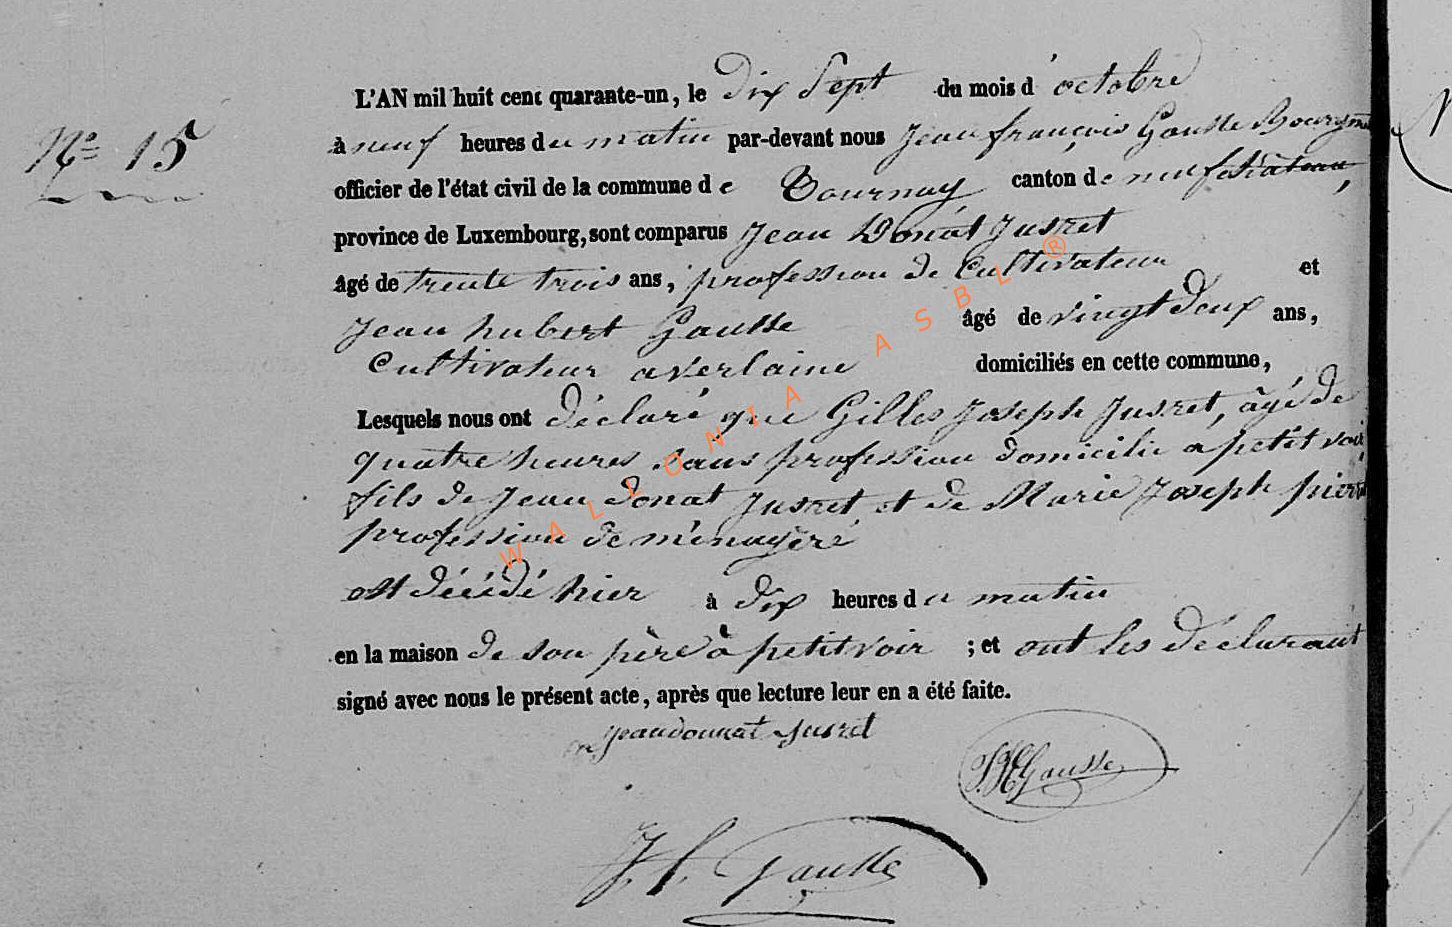 N° 15
L'AN mil huit cent quarante-un, le dix Sept du mois d'octobre
à neuf heures du matin par-devant nous Jean françois Gausse Bourgme
officier de l'état civil de la commune de Tournay canton de neufchateau,
province de Luxembourg, sont comparus Jean Donat Jusret
âgé de trente trois ans, profession de Cultivateur et
Jean hubert Gausse âgé de vingt deux ans,
Cultivateur a verlaine domiciliés en cette commune,
Lesquels nous ont déclaré que Gilles Joseph Jusret, âgé de
quatre heures sans profession domicilié a petit voir
fils de Jean donat Jusret et de Marie Joseph pierre
profession de ménagère
est décédé hier à dix heures du matin
en la maison de son père à petitvoir ; et ont les déclarant
signé avec nous le présent acte, après que lecture leur en a été faite.
jeandonnat jusret
J.H Gausse
J. f. Gausse
WALLONIA ASBL ®